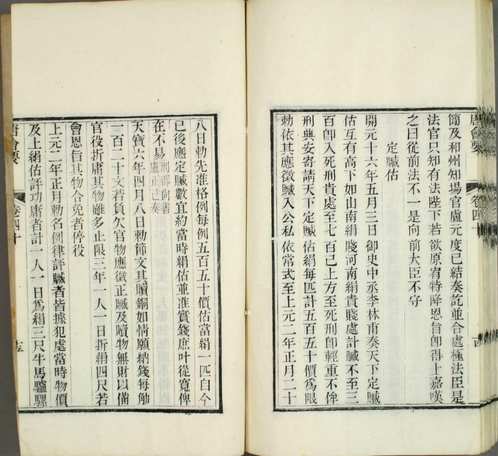 節及和州知場官盧元度已結奏訖並合處極法臣是
法官只知有法陛下若欲原宥特降恩旨即得上嘉嘆
之曰從前法不一是向前大臣不守
定贓估
開元十六年五月三日御史中丞李林甫奏天下定贓
估互有高下如山南絹賤河南絹貴賤處計贓不至三
百即入死刑貴處至七百已上方至死刑即輕重不侔
刑典安寄請天下定贓估絹每匹計五百五十價為限
勅依其應徵贓入公私依常式至上元二年正月二十
八日勅先准格例每例五百五十價估當絹一匹自今
已後應定贓數宜約當時絹估並准實錢庶叶從寬俾
在不易
天寶六年四月八日勅節文其贖銅如情願納錢每觔
一百二十文若負欠官物應徵正贓及贖物無財以備
官役折庸其物雖多止限三年一人一日折絹四尺若
會恩旨其物合免者停役
上元二年正月勅名例律評贓者皆據犯處當時物價
及上絹估評功庸者計一人一日為絹三尺牛馬驢騾
唐會要
卷四十